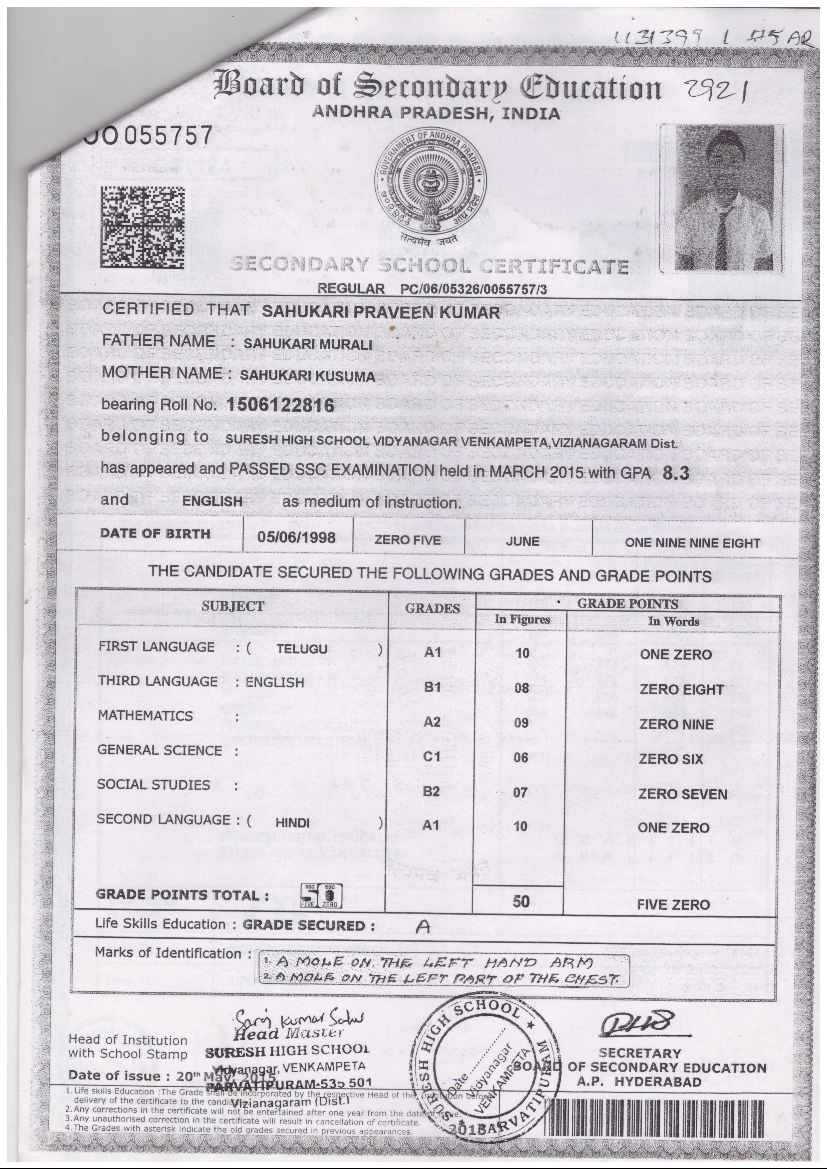 1131399 1
Board of Secondary Education 2921
ANDHRA PRADESH, INDIA
OO 055757
GOVERNMENT OF ANDHRA PRADESH
सत्यमेव जयते
SECONDARY SCHOOL CERTIFICATE
REGULAR PC/06/05326/0055757/3
CERTIFIED THAT SAHUKARI PRAVEEN KUMAR
FATHER NAME : SAHUKARI MURALI
MOTHER NAME : SAHUKARI KUSUMA
bearing Roll No. 1506122816
belonging to SURESH HIGH SCHOOL VIDYANAGAR VENKAMPETA,VIZIANAGARAM Dist.
has appeared and PASSED SSC EXAMINATION held in MARCH 2015 with GPA 8.3
and ENGLISH as medium of instruction.
DATE OF BIRTH 05/06/1998 ZERO FIVE JUNE ONE NINE NINE EIGHT
THE CANDIDATE SECURED THE FOLLOWING GRADES AND GRADE POINTS
SUBJECT GRADES GRADE POINTS
In Figures In Words
FIRST LANGUAGE : ( TELUGU ) A1 10 ONE ZERO
THIRD LANGUAGE : ENGLISH B1 08 ZERO EIGHT
MATHEMATICS : A2 09 ZERO NINE
GENERAL SCIENCE : C1 06 ZERO SIX
SOCIAL STUDIES : B2 07 ZERO SEVEN
SECOND LANGUAGE : ( HINDI ) A1 10 ONE ZERO
GRADE POINTS TOTAL : 50 FIVE ZERO 50 FIVE ZERO
Life Skills Education : GRADE SECURED : A
Marks of Identification : 1. A MOLE ON THE LEFT HAND ARM
2. A MOLE ON THE LEFT PART OF THE CHEST.
Head Master
Head of Institution
with School Stamp
SURESH HIGH SCHOOL
Vidyanagar, VENKAMPETA
PARVATIPURAM-535 501
Vizianagaram (Dist.)
SURESH HIGH SCHOOL ★ PARVATIPURAM ★
Date
Vidyanagar
VENKAMPETA
2015
SECRETARY
BOARD OF SECONDARY EDUCATION
A.P. HYDERABAD
Date of issue : 20th May, 2015
1. Life skills Education :The Grade shall be incorporated by the respective Head of the Institution before
delivery of the certificate to the candidate.
2. Any corrections in the certificate will not be entertained after one year from the date of issue.
3. Any unauthorised correction in the certificate will result in cancellation of certificate.
4. The Grades with asterisk indicate the old grades secured in previous appearances.